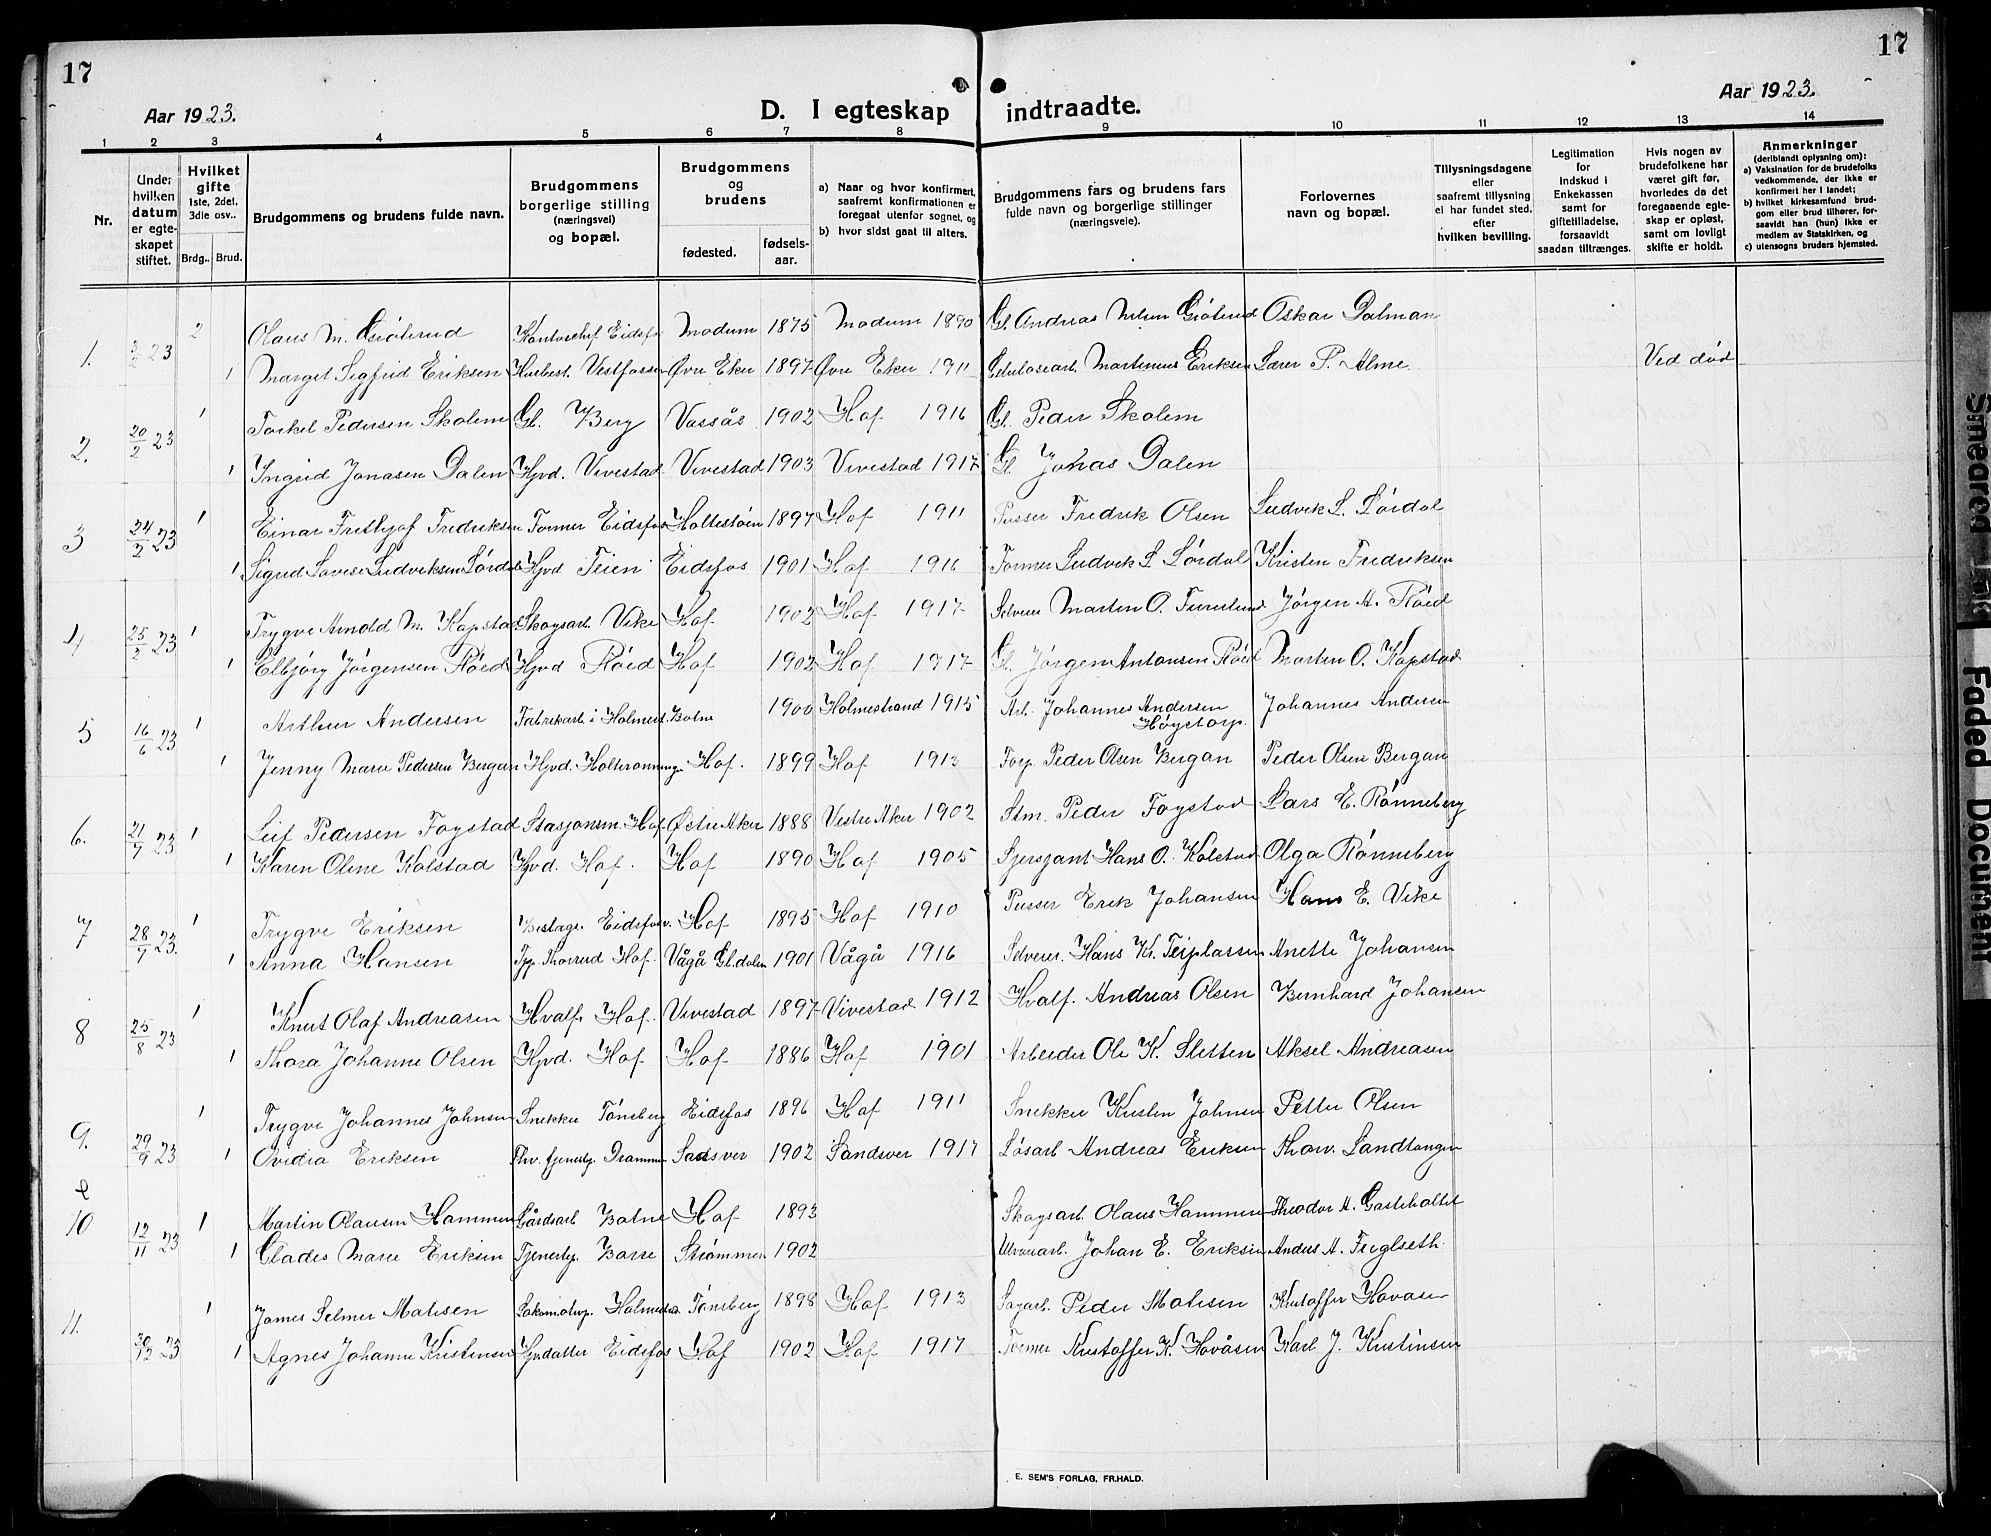 17
17
Aar 1923.
D. I egteskap indtraadte.
Aar 1923.
1 2 3 4 5 6 7 8 9 10 11 12 13 14
Nr.
Under hvilken datum er egte-skapet stiftet.
Hvilket gifte 1ste, 2del, 3die osv..
Brdg.. Brud.
Brudgommens og brudens fulde navn.
Brudgommens borgerlige stilling (næringsvei) og bopæl.
Brudgommens og brudens
fødested.
fødsels-aar.
a) Naar og hvor konfirmert, saafremt konfirmationen er foregaat utenfor sognet, og
b) hvor sidst gaat til alters.
Brudgommens fars og brudens fars fulde navn og borgerlige stillinger (næringsveie).
Forlovernes navn og bopæl.
Tillysningsdagene eller saafremt tillysning ei har fundet sted, efter hvilken bevilling.
Legitimation for Indskud i Enkekassen samt for giftetilladelse, forsaavidt saadan tiltrænges.
Hvis nogen av brudefolkene har været gift før, hvorledes da det foregaaende egte-skap er opløst, samt om lovligt skifte er holdt.
Anmerkninger (deriblandt oplysning om): a) Vaksination for de brudefolks vedkommende, der ikke er konfirmert her i landet; b) hvilket kirkesamfund brud-gom eller brud tilhører, for-saavidt han (hun) ikke er medlem av Statskirken, og c) utensogns bruders hjemsted.
2 Olaus M. Gjøterud Kontorchef Eidsfos Modum 1875 Modum 1890 Gl. Andreas Nilsen Gjøterud Oskar Dalman
1. 23 1 Margit Sigfrid Eriksen Husbest. Vestfossen Øvre Eker 1897 Øvre Eker 1911 Celulosearb. Martinius Eriksen Lærer P. Alme Ved død
1 Torkel Pedersen Skolem Gl. Berg Vassås 1902 Hof 1916 Gl. Peder Skolem
2. 20/2 23 1 Ingrid Jonasen Dalen Hjvd. Vivestad Vivestad 1903 Vivestad 1917 Gl. Jonas Dalen
1 Einar Frithjof Fredriksen Former Eidsfos Holtestøen 1897 Hof 1911 Pusser Fredrik Olsen Ludvik L. Lørdal
3 24/2 23 1 Sigrid Lovise Ludviksen Lørdal Hjvd Teien Eidsfos 1901 Hof 1916 Former Ludvik L Lørdal Kristen Fredriksen
1 Trygve Arnold M. Kopstad Skogsarb. Vike Hof 1902 Hof 1917 Selveier Martin O. Furulund Jørgen A. Røed
4 25/2 23 1 Elbjørg Jørgensen Røed Hjvd Røed Hof 1902 Hof 1917 Gl. Jørgen Antonsen Røed Martin O. Kopstad
1 Arthur Andersen Fabrikarb. i Holmest. Botne 1900 Holmestrand 1915 Arb. Johannes Andersen Høgstorp. Johannes Andersen
5 16/6 23 1 Jenny Marie Pedersen Bergan Hjvd. Holteronninge Hof. 1899 Hof 1913 Forp. Peder Olsen Bergan Peder Olsen Bergan
1 Leif Pedersen Fogstad Stasjonsm. Hof Østre Aker 1888 Vestre Aker 1902 Stm. Peder Fogstad Lars E. Rønneberg
6. 21/7 23 1 Karen Oline Kolstad Hjvd. Hof. Hof 1890 Hof 1905 Sjersjant Hans O. Kolstad Olga Rønneberg
1 Trygve Eriksen Bestags. Eidsfosv. Hof 1895 Hof 1910 Pusser Erik Johansen Hans E. Vike
7 28/7 23. 1 Anna Hansen Tjp. Thorrud Hof. Vågå Gl.dalen 1901 Vågå 1916 Selveier. Hans Kr. Teiplassen Anette Johansen
1 Knut Olaf Andreasen Hvalf. Hof. Vivestad 1897 Vivestad 1912 Hvalf. Andreas Olsen Bernhard Johansen
8 25/8 23 1 Thora Johanne Olsen Hjvd. Hof Hof 1886 Hof 1901 Arbeider Ole K. Sletten Aksel Andreasen
1 Trygve Johannes Johnsen Snekker Tønsberg Eidsfos 1896 Hof 1911 Snekker Kristen Johnsen Petter Olsen
9. 29/9 23 1 Ovidia Eriksen Thv. tjenestp. Drammen Sandsver 1902 Sandsver 1917 Løsarb Andreas Eriksen Thorv. Landtangen
10 1 Martin Olausen Hammen Gårdsarb Botne Hof 1893 Skogsarb. Olaus Hammen Theodor A. Gasteholtet
12/11 23 1 Glades Marie Eriksen Tjenestp. Borre Strømmen 1902 Johan E. Eriksen Anders A. Fuglseth
1 James Selmer Matisen Lokomotivp. Holmestr. Tønsberg 1898 Hof 1913 Sagarb. Peder Matisen Kristoffer Hovåsen
11. 30/12 23 1 Agnes Johanne Kristensen Hjvdatter Eidsfos Hof 1902 Hof 1917 Former Kristoffer K. Hovåsen Karl J. Kristinsen
E. SEM'S FORLAG, FR.HALD.
Smeared Ink
Faded Document